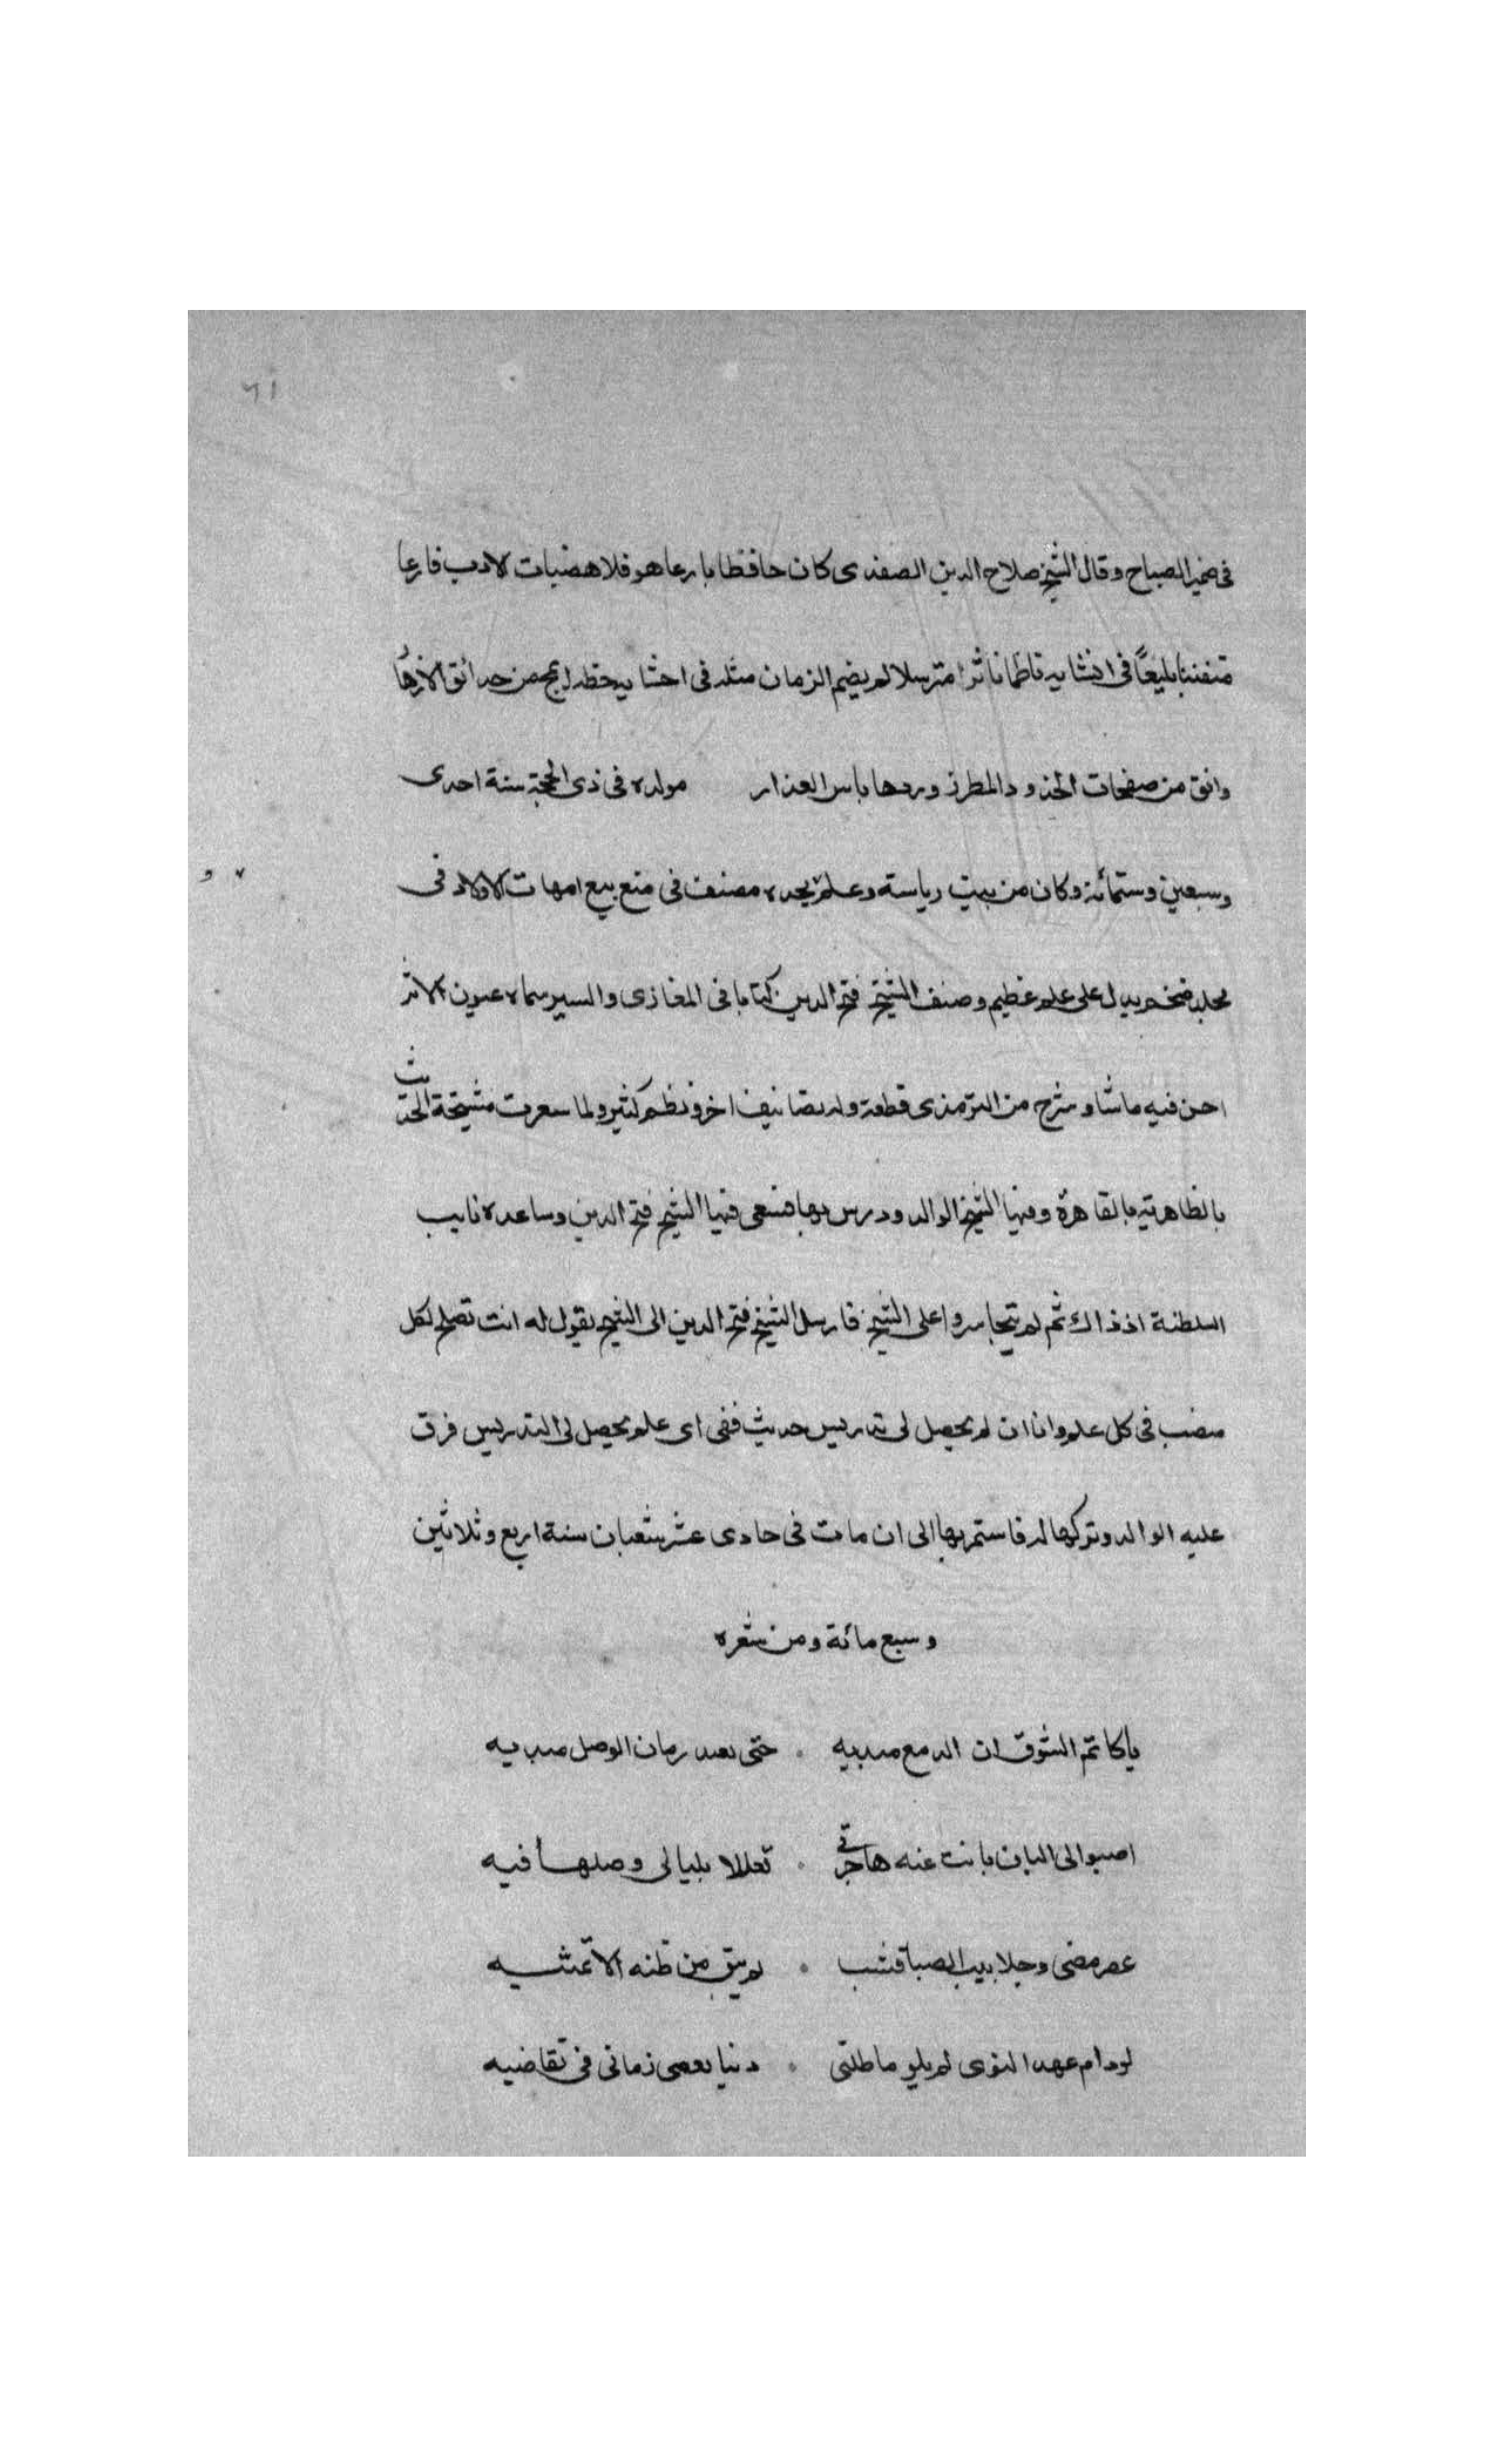 ٦١
في ضمير الصباح وقال الشيخ صلاح الدين الصفدى كان حافظا بارعا هو فلا هضبات الادب فارعا
متفننا بليغًا في انشايه ناظما ناثرا مترسلا لم يضم الزمان مثله في احشايه خطه ابهج من حدائق الازهار
وانق من صفحات الخدود المطرز وردها باس العذار مولده في ذى الحجة سنة احدى
وسبعين وستمائة وكان من بيت رياسة وعلم لجده مصنف في منع بيع امهات الاولاد في
مجلد ضخم يدل على علم عظيم وصنف الشيخ فتح الدين كتابا في المغازى والسير سماه عيون الاثر
احسن فيه ما شا وشرح من الترمذى قطعة وله تصانيف اخر ونظم كثير ولما شعرت مشيخة الحديث
بالظاهرية بالقاهرة وفيها الشيخ الوالد ودرس بها فسعى فيها الشيخ فتح الدين وساعده نايب
السلطنة اذ ذاك ثم لم يتجاسروا على الشيخ فارسل الشيخ فتح الدين الى الشيخ يقول له انت تصلح لكل
منصب في كل علم وانا ان لم يحصل لى تدريس حديث ففى اى علم يحصل لى التدريس فرق
عليه الوالد وتركها له فاستمر بها الى ان مات في حادى عشر شعبان سنة اربع وثلاثين
وسبع مائة ومن شعره
ياكاتم الشوق ان الدمع مبديه حتى يعيد زمان الوصل مبديه
اصبوا الى البان بانت عنه هاجرتى تعللا بليالى وصلها فيه
عصر مضى وجلابيب الصبا قشب لم يبق من ظنه الا تمنيه
لو دام عهد النوى لم يلو ماطلتى دنيا زمانى في تقاضيه